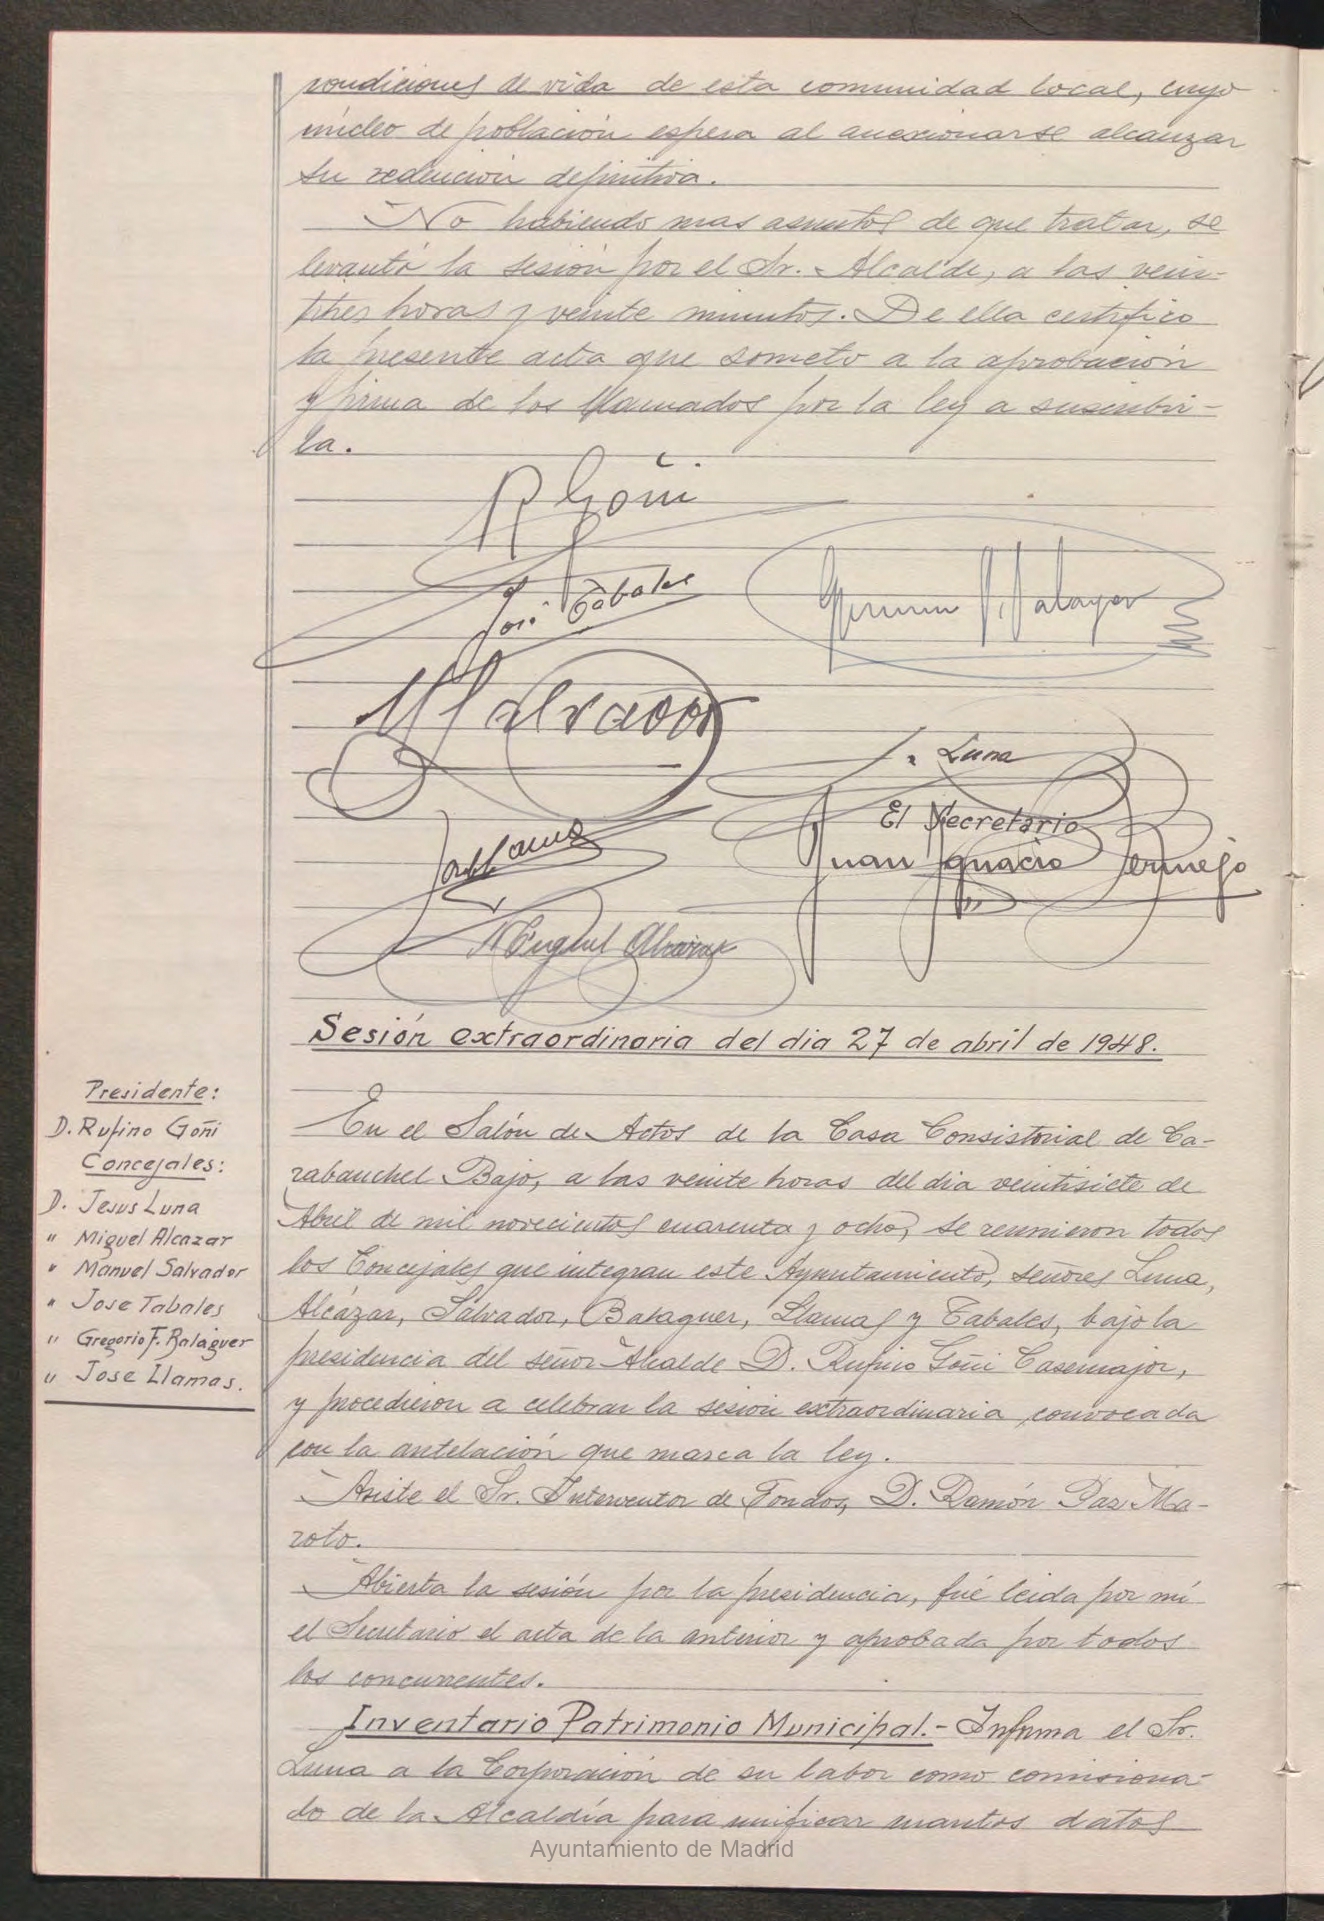 condiciones de vida de esta comunidad local, cuyo
núcleo de población espera al anexionarse alcanzar
su redención definitiva.
No habiendo mas asuntos de que tratar, se
levantó la sesión por el Sr. Alcalde, a las vein-
titres horas y veinte minutos. De ella certifico
la presente acta que someto a la aprobación
y firma de los llamados por la ley a suscribir-
la.
R Goñi
José Tabales
M Salvador
J. Luna
El Secretario
Juan Ignacio Bermejo
José Llamas
Miguel Alcázar
Sesión extraordinaria del dia 27 de abril de 1948.
Presidente:
D. Rufino Goñi
Concejales:
D. Jesus Luna
" Miguel Alcazar
" Manuel Salvador
" Jose Tabales
" Gregorio F. Balaguer
" Jose Llamas.
En el Salón de Actos de la Casa Consistorial de Ca-
rabanchel Bajo, a las veinte horas del dia veintisiete de
Abril de mil novecientos cuarenta y ocho, se reunieron todos
los Concejales que integran este Ayuntamiento, señores Luna,
Alcázar, Salvador, Balaguer, Llamas y Tabales, bajo la
presidencia del señor Alcalde D. Rufino Goñi Casemajor,
y procedieron a celebrar la sesión extraordinaria convocada
con la antelación que marca la ley.
Asiste el Sr. Interventor de Fondos, D. Ramón Paz Ma-
roto.
Abierta la sesión por la presidencia, fué leida por mí
el Secretario el acta de la anterior y aprobada por todos
los concurrentes.
Inventario Patrimonio Municipal.- Informa el Sr.
Luna a la Corporación de su labor como comisiona-
do de la Alcaldía para unificar cuantos datos
Ayuntamiento de Madrid